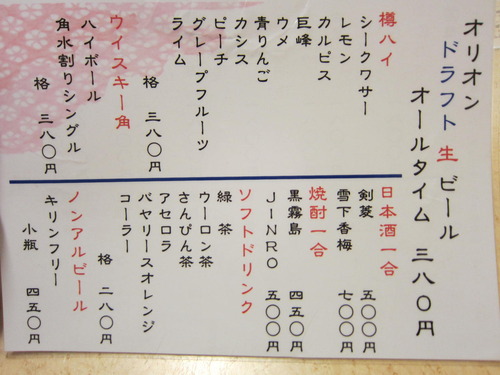 オリオン
ドラフト生ビール
オールタイム 三八〇円
樽ハイ
シークワサー
レモン
カルピス
巨峰
ウメ
青りんご
カシス
ピーチ
グレープフルーツ
ライム
格 三八〇円
ウイスキー角
ハイボール
角水割りシングル
格 三八〇円
日本酒一合
剣菱 五〇〇円
雪下香梅 七〇〇円
焼酎一合
黒霧島 四五〇円
JINRO 五〇〇円
ソフトドリンク
緑茶
ウーロン茶
さんぴん茶
アセロラ
バヤリースオレンジ
コーラー
格 二八〇円
ノンアルビール
キリンフリー
小瓶 四五〇円